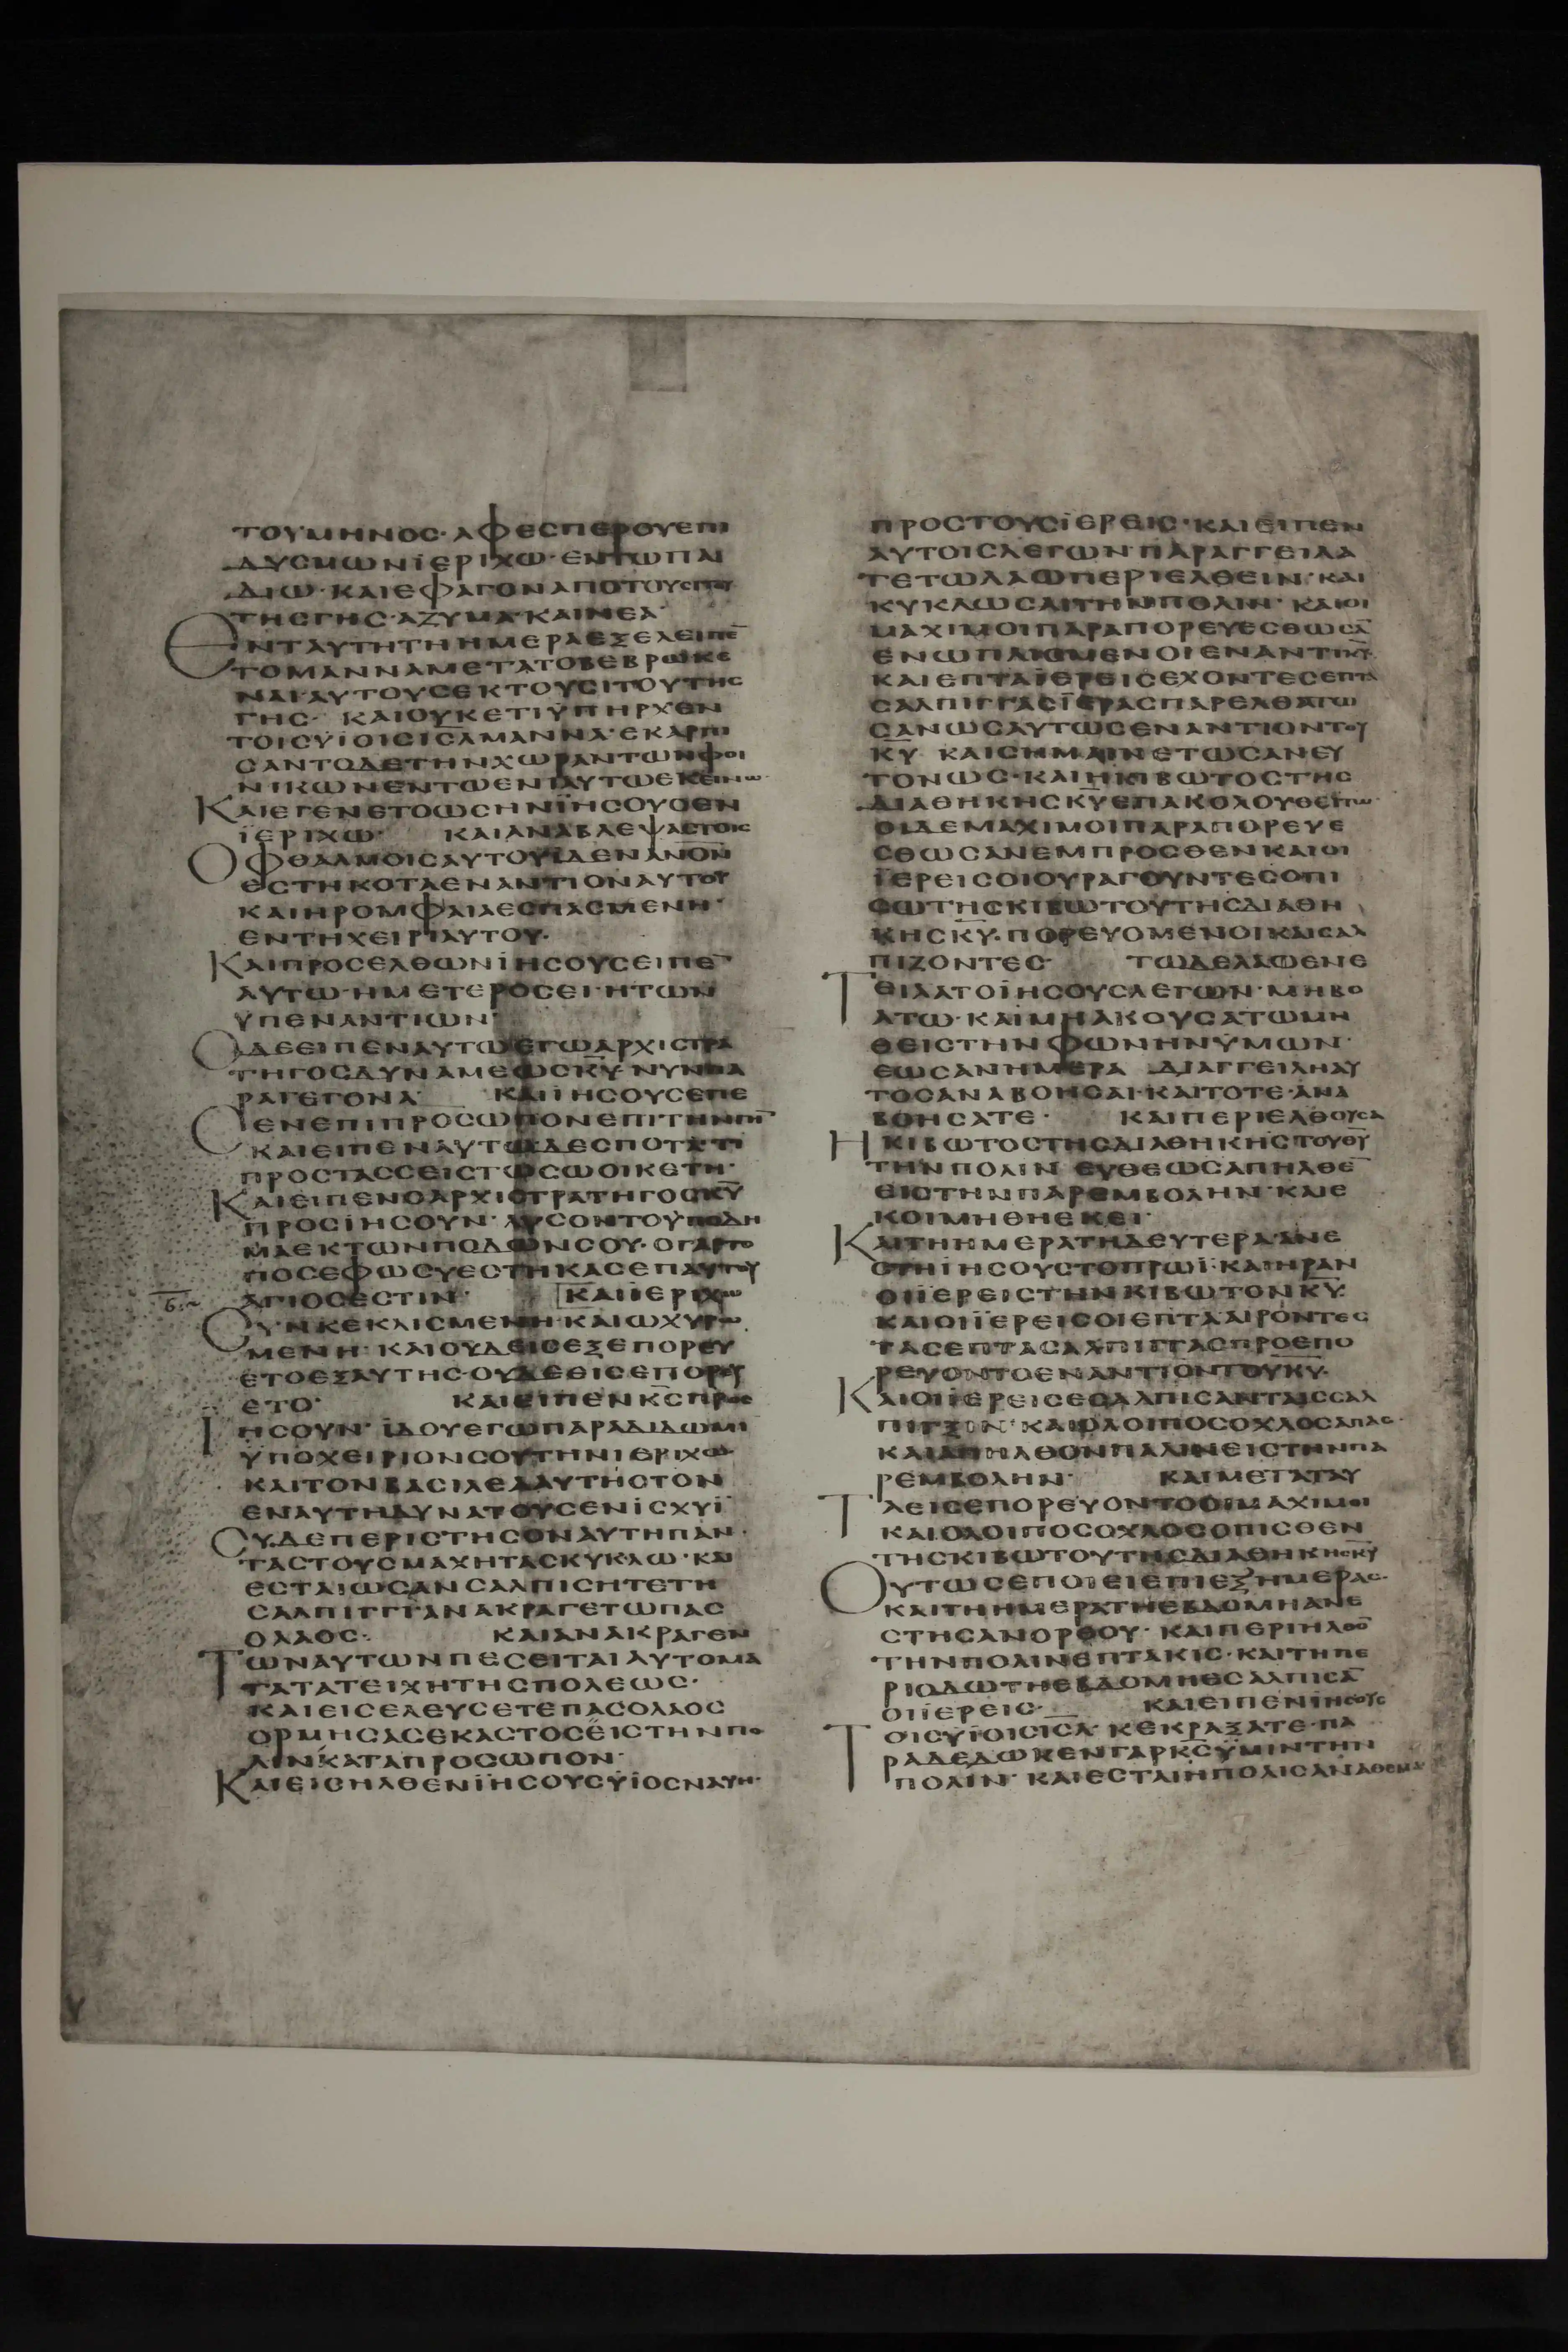 ΤΟΥΜΗΝΟΣ· ΑΦΕΣΠΕΡΟΥΕΠΙ
ΔΥΣΜΩΝΪΕΡΙΧΩ· ΕΝΤΩΠΑΙ
ΔΙΩ· ΚΑΙΕΦΑΓΟΝΑΠΟΤΟΥΣΙΤΟΥ
ΤΗΣΓΗΣ· ΑΖΥΜΑ· ΚΑΙΝΕΑ·
ΕΝΤΑΥΤΗΤΗΗΜΕΡΑΕΞΕΛΕΙΠΕ̅
ΤΟΜΑΝΝΑΜΕΤΑΤΟΒΕΒΡΩΚΕ
ΝΑΙΑΥΤΟΥΣΕΚΤΟΥΣΙΤΟΥΤΗΣ
ΓΗΣ· ΚΑΙΟΥΚΕΤΙΫΠΗΡΧΕΝ
ΤΟΙΣΫΪΟΙΣΙΣΛΜΑΝΝΑ· ΕΚΑΡΠΙ
ΣΑΝΤΟΔΕΤΗΝΧΩΡΑΝΤΩΝΦΟΙ
ΝΙΚΩΝΕΝΤΩΕΝΙΑΥΤΩΕΚΕΙΝΩ·
ΚΑΙΕΓΕΝΕΤΟΩΣΗΝΪΗΣΟΥΣΕΝ
ΪΕΡΙΧΩ· ΚΑΙΑΝΑΒΛΕΨΑΣΤΟΙΣ
ΟΦΘΑΛΜΟΙΣΑΥΤΟΥΪΔΕΝΑΝΟΝ
ΕΣΤΗΚΟΤΑΕΝΑΝΤΙΟΝΑΥΤΟΥ
ΚΑΙΗΡΟΜΦΑΙΑΕΣΠΑΣΜΕΝΗ·
ΕΝΤΗΧΕΙΡΙΑΥΤΟΥ·
ΚΑΙΠΡΟΣΕΛΘΩΝΪΗΣΟΥΣΕΙΠΕ̅
ΑΥΤΩ· ΗΜΕΤΕΡΟΣΕΙ· ΗΤΩΝ
ΫΠΕΝΑΝΤΙΩΝ·
ΟΔΕΕΙΠΕΝΑΥΤΩΕΓΩΑΡΧΙΣΤΡΑ
ΤΗΓΟΣΔΥΝΑΜΕΩΣΚΥ̅· ΝΥΝΠΑ
ΡΑΓΕΓΟΝΑ· ΚΑΙΪΗΣΟΥΣΕΠΕ
ΣΕΝΕΠΙΠΡΟΣΩΠΟΝΕΠΙΤΗΝΓΗ̅
ΚΑΙΕΙΠΕΝΑΥΤΩΔΕΣΠΟΤΑ· ΤΙ
ΠΡΟΣΤΑΣΣΕΙΣΤΩΣΩΟΙΚΕΤΗ·
ΚΑΙΕΙΠΕΝΟΑΡΧΙΣΤΡΑΤΗΓΟΣΚΥ̅
ΠΡΟΣΪΗΣΟΥΝ· ΛΥΣΟΝΤΟΫΠΟΔΗ
ΜΑΕΚΤΩΝΠΟΔΩΝΣΟΥ· ΟΓΑΡΤΟ
ΠΟΣΕΦΩΣΥΕΣΤΗΚΑΣΕΠΑΥΤΟΥ
ΑΓΙΟΣΕΣΤΙΝ· ΚΑΙΪΕΡΙΧΩ
ΣΥΝΚΕΚΛΙΣΜΕΝΗ· ΚΑΙΩΧΥΡΩ
ΜΕΝΗ· ΚΑΙΟΥΔΕΙΣΕΞΕΠΟΡΕΥ
ΕΤΟΕΞΑΥΤΗΣ· ΟΥΔΕΘΙΣΕΠΟΡΕΥ
ΕΤΟ· ΚΑΙΕΙΠΕΝΚΣ̅ΠΡΟΣ
ΙΗΣΟΥΝ· ΪΔΟΥΕΓΩΠΑΡΑΔΙΔΩΜΙ
ΫΠΟΧΕΙΡΙΟΝΣΟΥΤΗΝΙΕΡΙΧΩ
ΚΑΙΤΟΝΒΑΣΙΛΕΑΑΥΤΗΣΤΟΝ
ΕΝΑΥΤΗΔΥΝΑΤΟΥΣΕΝΙΣΧΥΪ
ΣΥΔΕΠΕΡΙΣΤΗΣΟΝΑΥΤΗΠΑΝ·
ΤΑΣΤΟΥΣΜΑΧΗΤΑΣΚΥΚΛΩ· ΚΑΙ
ΕΣΤΑΙΩΣΑΝΣΑΛΠΙΣΗΤΕΤΗ
ΣΑΛΠΙΓΓΙΑΝΑΚΡΑΓΕΤΩΠΑΣ
ΟΛΑΟΣ· ΚΑΙΑΝΑΚΡΑΓΕΝ
ΤΩΝΑΥΤΩΝΠΕΣΕΙΤΑΙΑΥΤΟΜΑ
ΤΑΤΑΤΕΙΧΗΤΗΣΠΟΛΕΩΣ·
ΚΑΙΕΙΣΕΛΕΥΣΕΤΕΠΑΣΟΛΑΟΣ
ΟΡΜΗΣΑΣΕΚΑΣΤΟΣΕΙΣΤΗΝΠΟ
ΛΙΝΚΑΤΑΠΡΟΣΩΠΟΝ·
ΚΑΙΕΙΣΗΛΘΕΝΪΗΣΟΥΣΫΪΟΣΝΑΥΗ·
ΠΡΟΣΤΟΥΣΪΕΡΕΙΣ· ΚΑΙΕΙΠΕΝ
ΑΥΤΟΙΣΛΕΓΩΝ· ΠΑΡΑΓΓΕΙΛΑ
ΤΕΤΩΛΑΩΠΕΡΙΕΛΘΕΙΝ· ΚΑΙ
ΚΥΚΛΩΣΑΙΤΗΝΠΟΛΙΝ· ΚΑΙΟΙ
ΜΑΧΙΜΟΙΠΑΡΑΠΟΡΕΥΕΣΘΩΣΑ̅
ΕΝΩΠΛΙΣΜΕΝΟΙΕΝΑΝΤΙΚΥ̅·
ΚΑΙΕΠΤΑΪΕΡΕΙΣΕΧΟΝΤΕΣΕΠΤΑ
ΣΑΛΠΙΓΓΑΣΪΕΡΑΣΠΑΡΕΛΘΑΤΩ
ΣΑΝΩΣΑΥΤΩΣΕΝΑΝΤΙΟΝΤΟΥ
ΚΥ̅ ΚΑΙΣΗΜΑΙΝΕΤΩΣΑΝΕΥ
ΤΟΝΩΣ· ΚΑΙΗΚΙΒΩΤΟΣΤΗΣ
ΔΙΑΘΗΚΗΣΚΥ̅ΕΠΑΚΟΛΟΥΘΕΙΤΩ·
ΟΙΔΕΜΑΧΙΜΟΙΠΑΡΑΠΟΡΕΥΕ
ΣΘΩΣΑΝΕΜΠΡΟΣΘΕΝΚΑΙΟΙ
ΪΕΡΕΙΣΟΙΟΥΡΑΓΟΥΝΤΕΣΟΠΙ
ΣΩΤΗΣΚΙΒΩΤΟΥΤΗΣΔΙΑΘΗ
ΚΗΣΚΥ̅· ΠΟΡΕΥΟΜΕΝΟΙΚΑΙΣΑΛ
ΠΙΖΟΝΤΕΣ· ΤΩΔΕΛΑΩΕΝΕ
ΤΕΙΛΑΤΟΪΗΣΟΥΣΛΕΓΩΝ· ΜΗΒΟ
ΑΤΩ· ΚΑΙΜΗΑΚΟΥΣΑΤΩΜΗ
ΘΕΙΣΤΗΝΦΩΝΗΝΫΜΩΝ·
ΕΩΣΑΝΗΜΕΡΑ ΔΙΑΓΓΕΙΛΗΑΥ
ΤΟΣΑΝΑΒΟΗΣΑΙ· ΚΑΙΤΟΤΕ· ΑΝΑ
ΒΟΗΣΑΤΕ· ΚΑΙΠΕΡΙΕΛΘΟΥΣΑ
ΗΚΙΒΩΤΟΣΤΗΣΔΙΑΘΗΚΗΣΤΟΥΘΥ̅
ΤΗΝΠΟΛΙΝ ΕΥΘΕΩΣΑΠΗΛΘΕ̅
ΕΙΣΤΗΝΠΑΡΕΜΒΟΛΗΝ· ΚΑΙΕ
ΚΟΙΜΗΘΗΕΚΕΙ·
ΚΑΙΤΗΗΜΕΡΑΤΗΔΕΥΤΕΡΑΑΝΕ
ΣΤΗΪΗΣΟΥΣΤΟΠΡΩΪ· ΚΑΙΗΡΑΝ
ΟΙΪΕΡΕΙΣΤΗΝΚΙΒΩΤΟΝΚΥ̅·
ΚΑΙΟΙΪΕΡΕΙΣΟΙΕΠΤΑΑΙΡΟΝΤΕΣ
ΤΑΣΕΠΤΑΣΑΛΠΙΓΓΑΣΠΡΟΕΠΟ
ΡΕΥΟΝΤΟΕΝΑΝΤΙΟΝΤΟΥΚΥ̅·
ΚΑΙΟΙΪΕΡΕΙΣΕΣΑΛΠΙΣΑΝΤΑΙΣΣΑΛ
ΠΙΓΞΙΝ· ΚΑΙΟΛΟΙΠΟΣΟΧΛΟΣΑΠΑΣ·
ΚΑΙΑΠΗΛΘΟΝΠΑΛΙΝΕΙΣΤΗΝΠΑ
ΡΕΜΒΟΛΗΝ· ΚΑΙΜΕΤΑΤΑΥ
ΤΑΕΙΣΕΠΟΡΕΥΟΝΤΟΟΙΜΑΧΙΜΟΙ
ΚΑΙΟΛΟΙΠΟΣΟΧΛΟΣΟΠΙΣΘΕΝ
ΤΗΣΚΙΒΩΤΟΥΤΗΣΔΙΑΘΗΚΗΣΚΥ̅
ΟΥΤΩΣΕΠΟΙΕΙΕΠΙΕΞΗΜΕΡΑΣ·
ΚΑΙΤΗΗΜΕΡΑΤΗΕΒΔΟΜΗΑΝΕ
ΣΤΗΣΑΝΟΡΘΟΥ· ΚΑΙΠΕΡΙΗΛΘΟ̅
ΤΗΝΠΟΛΙΝΕΠΤΑΚΙΣ· ΚΑΙΤΗΠΕ
ΡΙΟΔΩΤΗΕΒΔΟΜΗΕΣΑΛΠΙΣΑ̅
ΟΙΪΕΡΕΙΣ· ΚΑΙΕΙΠΕΝΪΗΣΟΥΣ
ΤΟΙΣΫΪΟΙΣΙΣΛ· ΚΕΚΡΑΞΑΤΕ· ΠΑ
ΡΑΔΕΔΩΚΕΝΓΑΡΚΣ̅ΫΜΙΝΤΗΝ
ΠΟΛΙΝ· ΚΑΙΕΣΤΑΙΗΠΟΛΙΣΑΝΑΘΕΜΑ